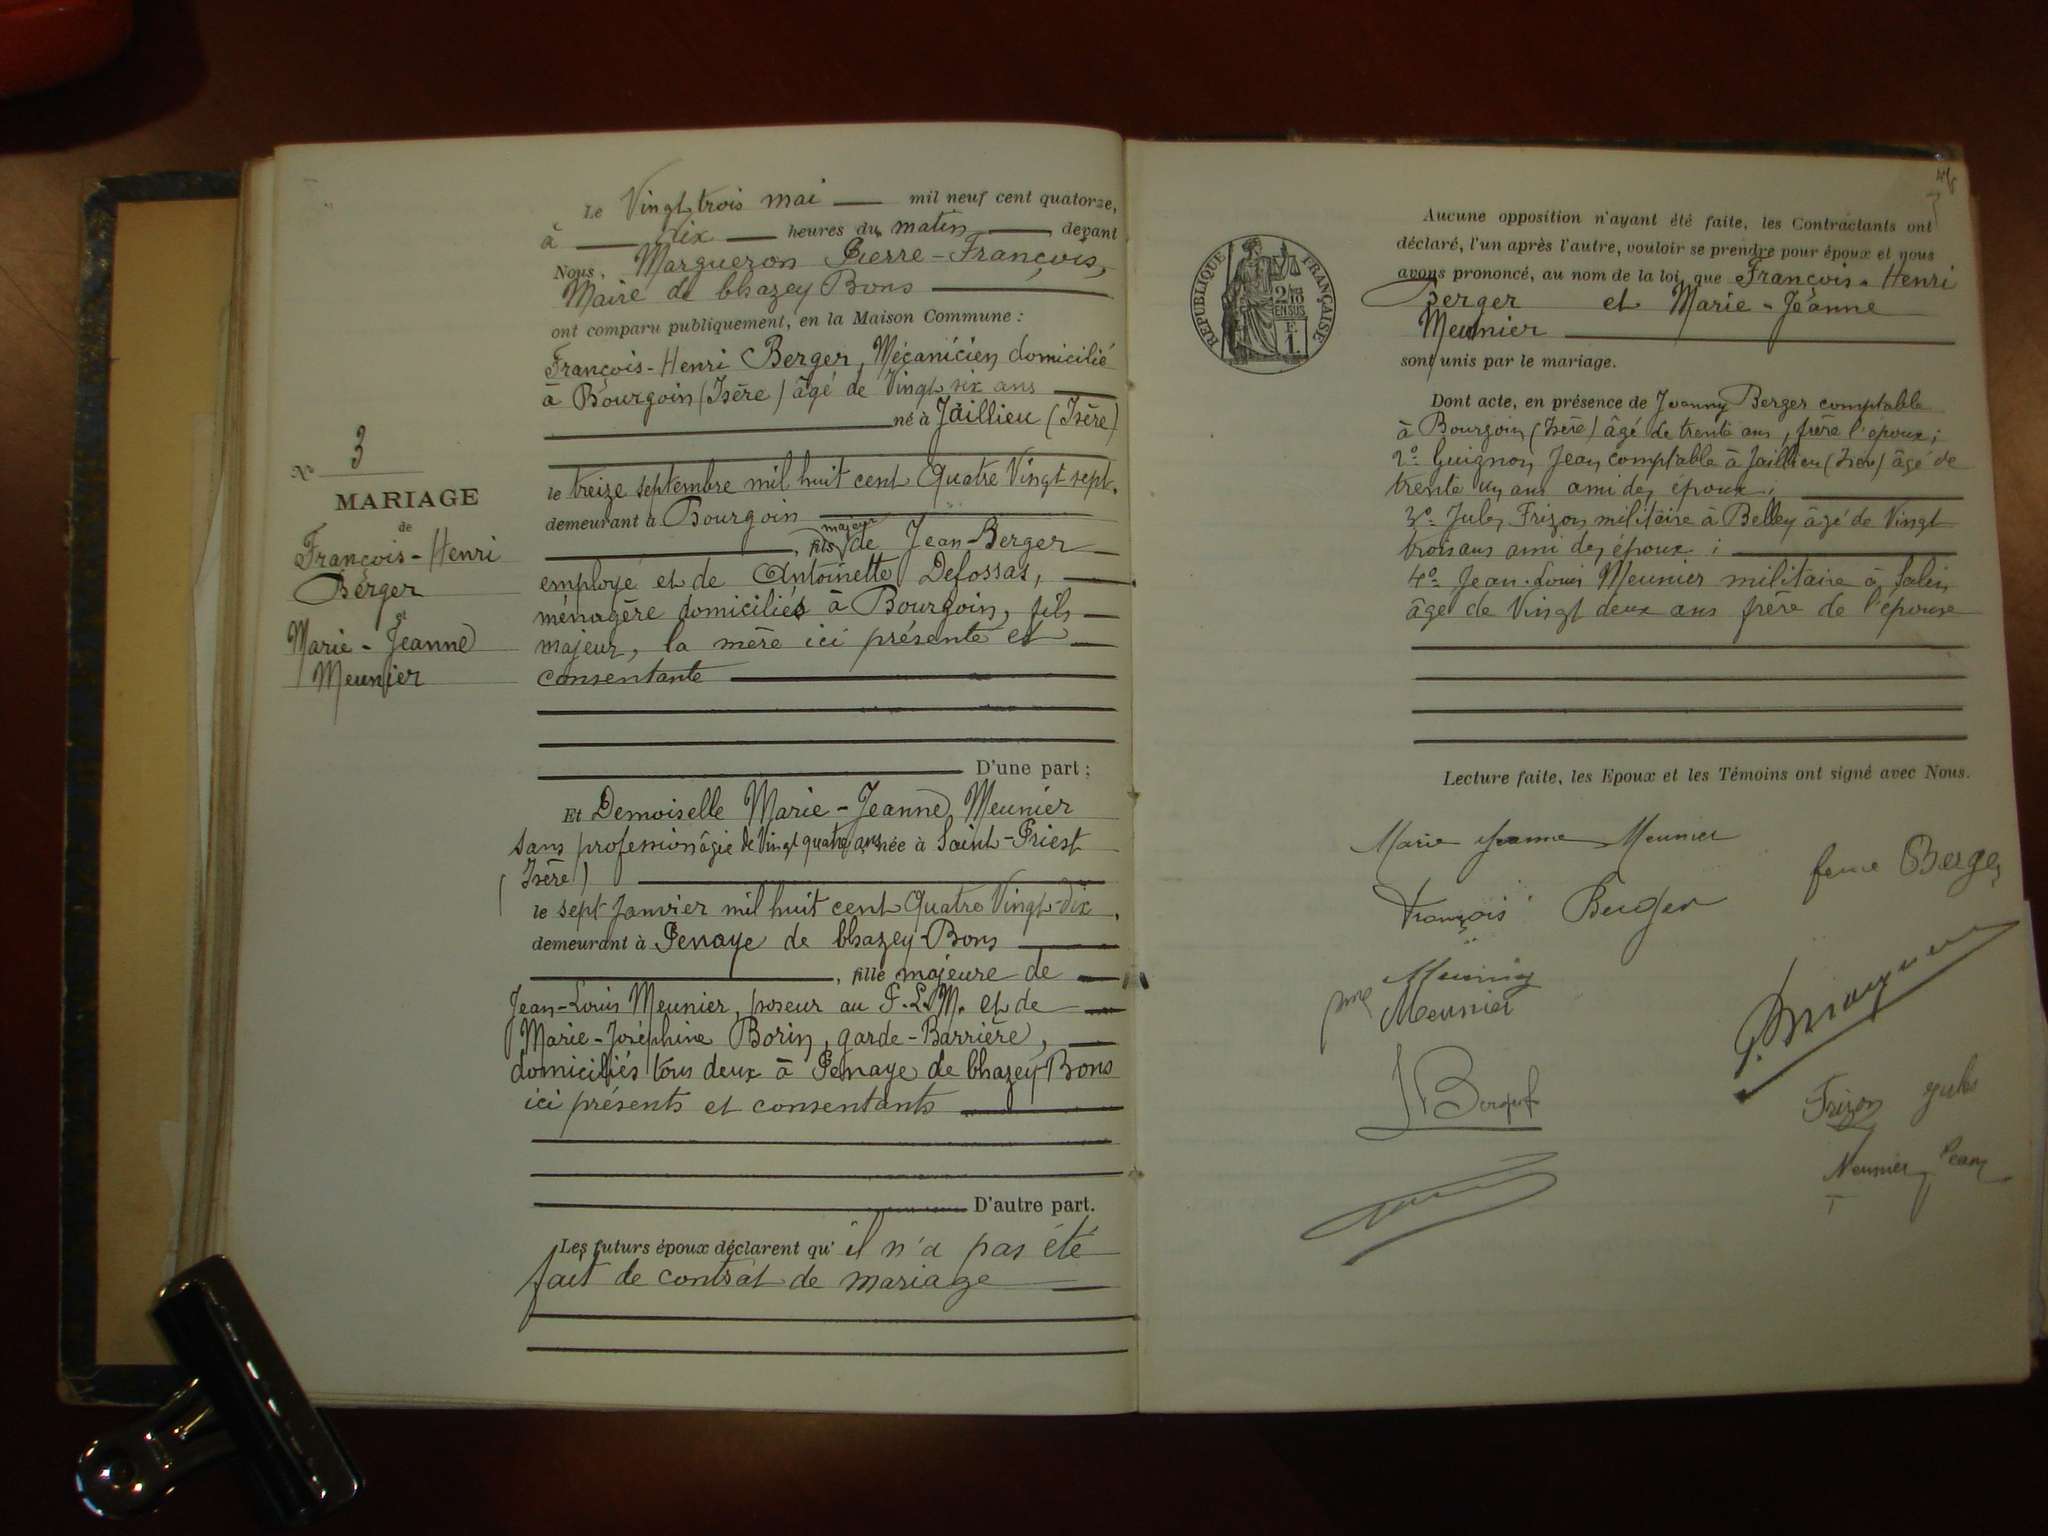 Le Vingt trois mai mil neuf cent quatorze,
à dix heures du matin devant
Nous, Marguezon Pierre-François,
Maire de Chazey Bons
ont comparu publiquement, en la Maison Commune :
François-Henri Berger, Mécanicien domicilié
à Bourgoin (Isère) âgé de Vingt six ans
né à Jaillieu (Isère)
le treize septembre mil huit cent Quatre Vingt sept.
demeurant à Bourgoin
majeur
, fils de Jean Berger
employé et de Antoinette Defossas,
ménagère domiciliés à Bourgoin, fils
majeur, la mère ici présente et
consentante
D'une part ;
N° 3
MARIAGE
de
François-Henri
Berger
et
Marie-Jeanne
Meunier
Et Demoiselle Marie-Jeanne Meunier
sans profession âgée de Vingt quatre ans née à Saint-Priest
(Isère)
le sept Janvier mil huit cent Quatre Vingt-Dix,
demeurant à Penaye de Chazey-Bons
, fille majeure de
Jean-Louis Meunier, poseur au P.L.M. et de
Marie-Joséphine Borin, garde-Barrière,
domiciliés tous deux à Penaye de Chazey Bons
ici présents et consentants
D'autre part.
Les futurs époux déclarent qu'il n'a pas été
fait de contrat de mariage
REPUBLIQUE FRANÇAISE
Aucune opposition n'ayant été faite, les Contractants ont
déclaré, l'un après l'autre, vouloir se prendre pour époux et nous
avons prononcé, au nom de la loi, que François-Henri
Berger et Marie-Jeanne
Meunier
sont unis par le mariage.
Dont acte, en présence de Joanny Berger comptable
à Bourgoin (Isère) âgé de trente ans, frère l'époux ;
2° Guignon Jean comptable à Jaillieu (Isère) âgé de
trente un ans ami des époux ;
3° Jules Frizon militaire à Belley âgé de Vingt
trois ans ami des époux ;
4° Jean-Louis Meunier militaire à Salin
âgé de Vingt deux ans frère de l'épouse
Lecture faite, les Epoux et les Témoins ont signé avec Nous.
Marie Jeanne Meunier
François Berger
feme Berger
Meunier
Meunier
J Berger
Frizon Jules
Meunier Jean